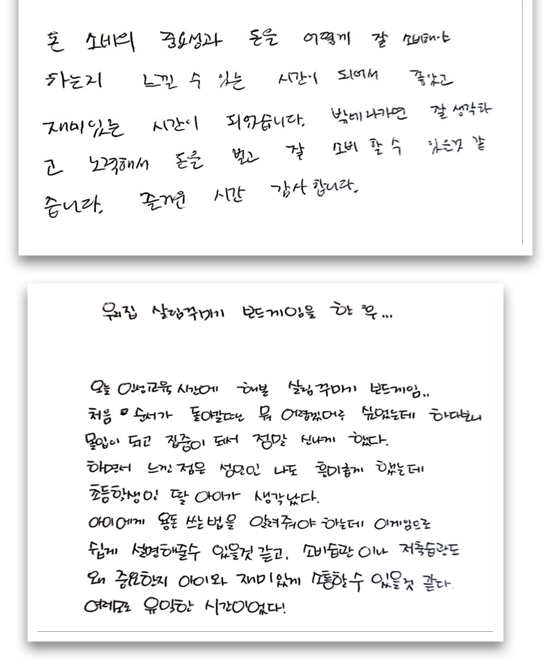 돈 소비의 중요성과 돈을 어떻게 잘 소비해야
하는지 느낄 수 있는 시간이 되어서 좋았고
재미있는 시간이 되었습니다. 밖에 나가면 잘 생각하
고 노력해서 돈을 벌고 잘 소비 할 수 있는것 같
습니다. 즐거운 시간 감사합니다.
우리집 살림꾸미기 보드게임을 한 후...
오늘 인성교육 시간에 해본 살림꾸미기 보드게임..
처음 순서가 돌아갈때만 뭐 이런것이며 싶었는데 하다보니
몰입이 되고 집중이 되서 정말 신나게 했다.
하면서 느낀 점은 성인인 나도 흥미롭게 했는데
초등학생인 딸 아이가 생각났다.
아이에게 용돈 쓰는법을 알려줘야 하는데 이게임으로
쉽게 설명해줄수 있을것 같고, 소비습관 이나 저축습관도
왜 중요한지 아이와 재미있게 소통할수 있을것 같다.
여러모로 유익한 시간이었다!